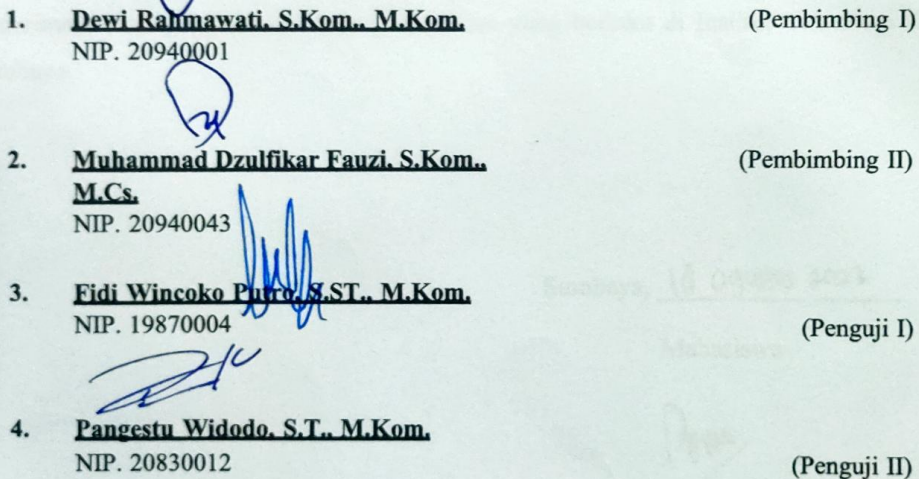 1. Dewi Rahmawati, S.Kom., M.Kom. (Pembimbing I)
NIP. 20940001
2. Muhammad Dzulfikar Fauzi, S.Kom., (Pembimbing II)
M.Cs.
NIP. 20940043
3. Fidi Wincoko Putro, S.ST., M.Kom.
NIP. 19870004 (Penguji I)
4. Pangestu Widodo, S.T., M.Kom.
NIP. 20830012 (Penguji II)
Surabaya, 18
Mahasiswa